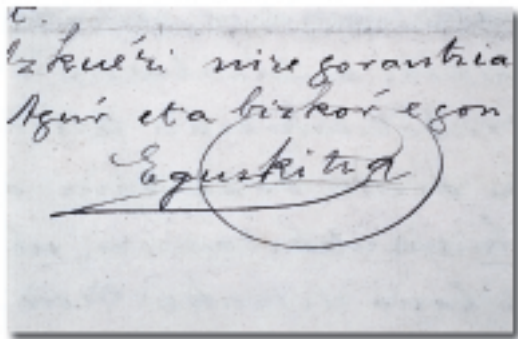 zkuéri nire gorantzia
Aguŕ eta bizkoŕ egon
Eguskitza